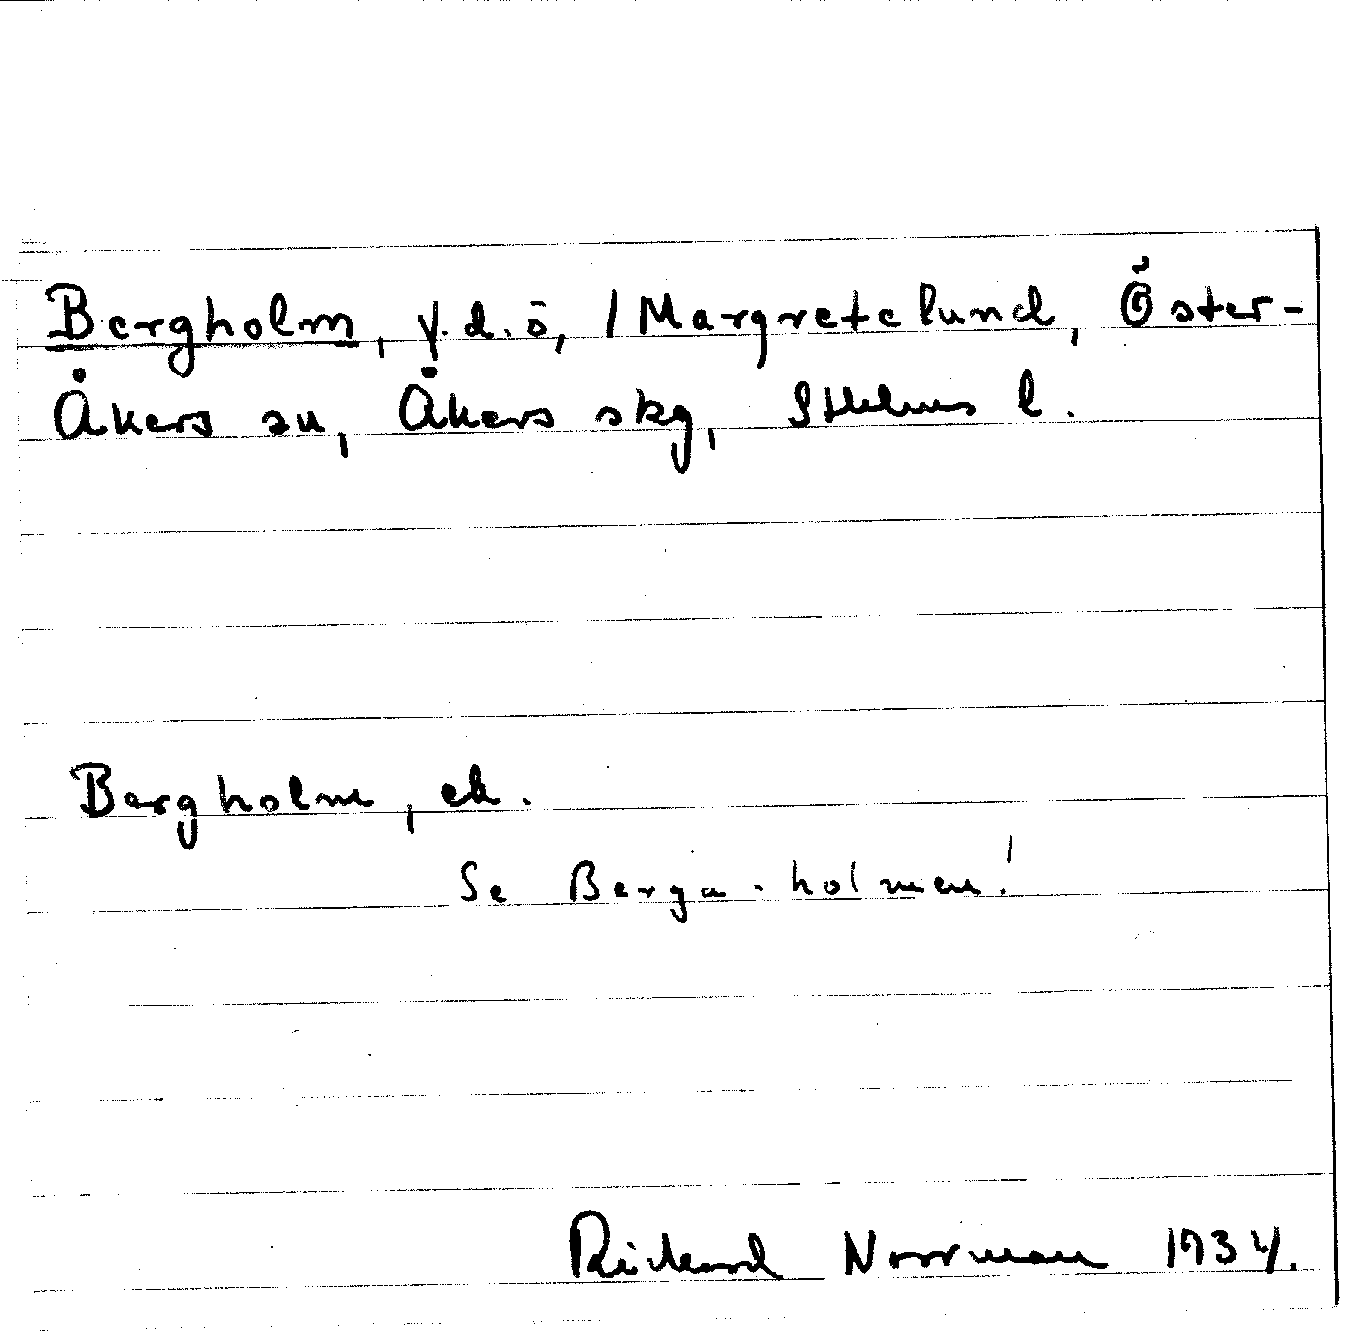 Bergholm, y.d.ö, / Margretelund, Öster-
Åkers sn, Åkers skg, Sthlms l.
Bergholm, ek.
Se Berga-holmen!
Rickard Norrman 1934.